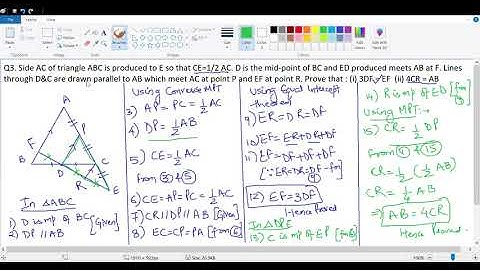 Q3. Side AC of triangle ABC is produced to E so that CE=1/2 AC. D is the mid-point of BC and ED produced meets AB at F. Lines
through D&C are drawn parallel to AB which meet AC at point P and EF at point R. Prove that : (i) 3DF = EF (ii) 4CR = AB
A
F
P
B
D
C
R
E
In △ABC
1) D is mp of BC [Given]
2) DP ∥ AB
Using Converse MPT
3) AP = PC = 1/2 AC
4) DP = 1/2 AB
5) CE = 1/2 AC
from 3 & 5
6) CE = AP = PC = 1/2 AC
7) CR ∥ DP ∥ AB [Given]
8) EC = CP = PA [from 6]
Using Equal Intercept
theorem
9) ER = DR = DF
10) EF = ER + DR + DF
11) EF = DF + DF + DF
(∵ ER = DR = DF - from 9)
12) EF = 3DF
Hence Proved
In △DPE
13) C is mp of EP [from 8]
14) R is mp of ED [from 9]
Using MPT:-
15) CR = 1/2 DP
from 4 & 15
CR = 1/2 (1/2 AB)
CR = 1/4 AB
⇒ AB = 4CR
Hence Proved.